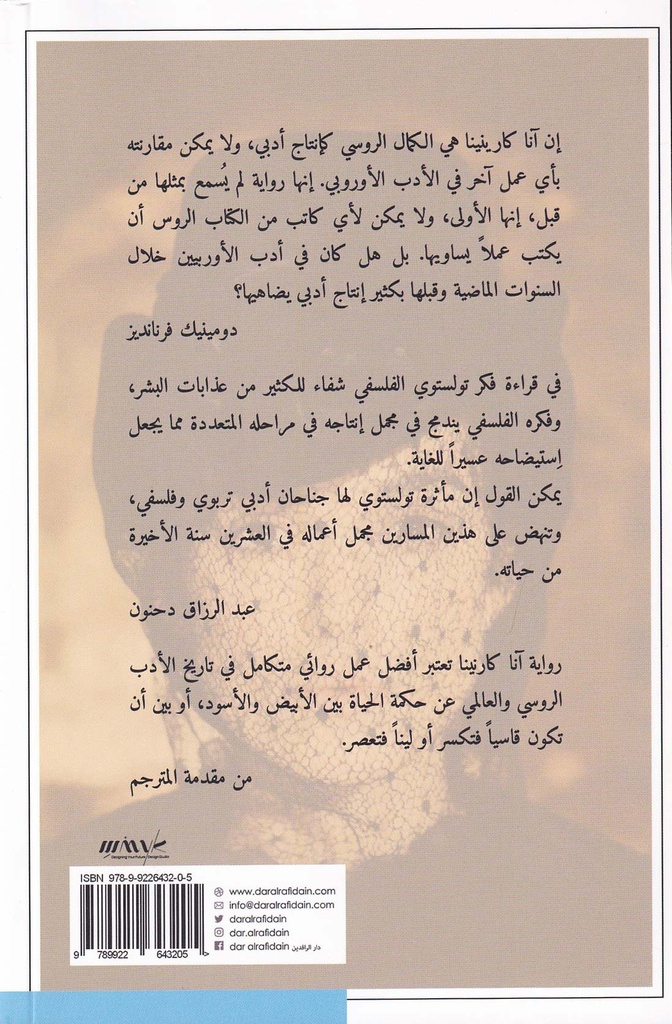 إن آنا كارينينا هي الكمال الروسي كإنتاج أدبي، ولا يمكن مقارنته
بأي عمل آخر في الأدب الأوروبي. إنها رواية لم يُسمع بمثلها من
قبل، إنها الأولى، ولا يمكن لأي كاتب من الكتاب الروس أن
يكتب عملاً يساويها. بل هل كان في أدب الأوربيين خلال
السنوات الماضية وقبلها بكثير إنتاج أدبي يضاهيها؟
دومينيك فرنانديز
في قراءة فكر تولستوي الفلسفي شفاء للكثير من عذابات البشر،
وفكره الفلسفي يندمج في مجمل إنتاجه في مراحله المتعددة مما يجعل
إستيضاحه عسيراً للغاية.
يمكن القول إن مأثرة تولستوي لها جناحان أدبي تربوي وفلسفي،
وتنهض على هذين المسارين مجمل أعماله في العشرين سنة الأخيرة
من حياته.
عبد الرزاق دحنون
رواية آنا كارنينا تعتبر أفضل عمل روائي متكامل في تاريخ الأدب
الروسي والعالمي عن حكمة الحياة بين الأبيض والأسود، أو بين أن
تكون قاسياً فتكسر أو ليناً فتعصر.
من مقدمة المترجم
ISBN 978-9-9226432-0-5
9 789922 643205 >
www.daralrafidain.com
info@daralrafidain.com
daralrafidain
dar.alrafidain
dar alrafidain دار الرافدين